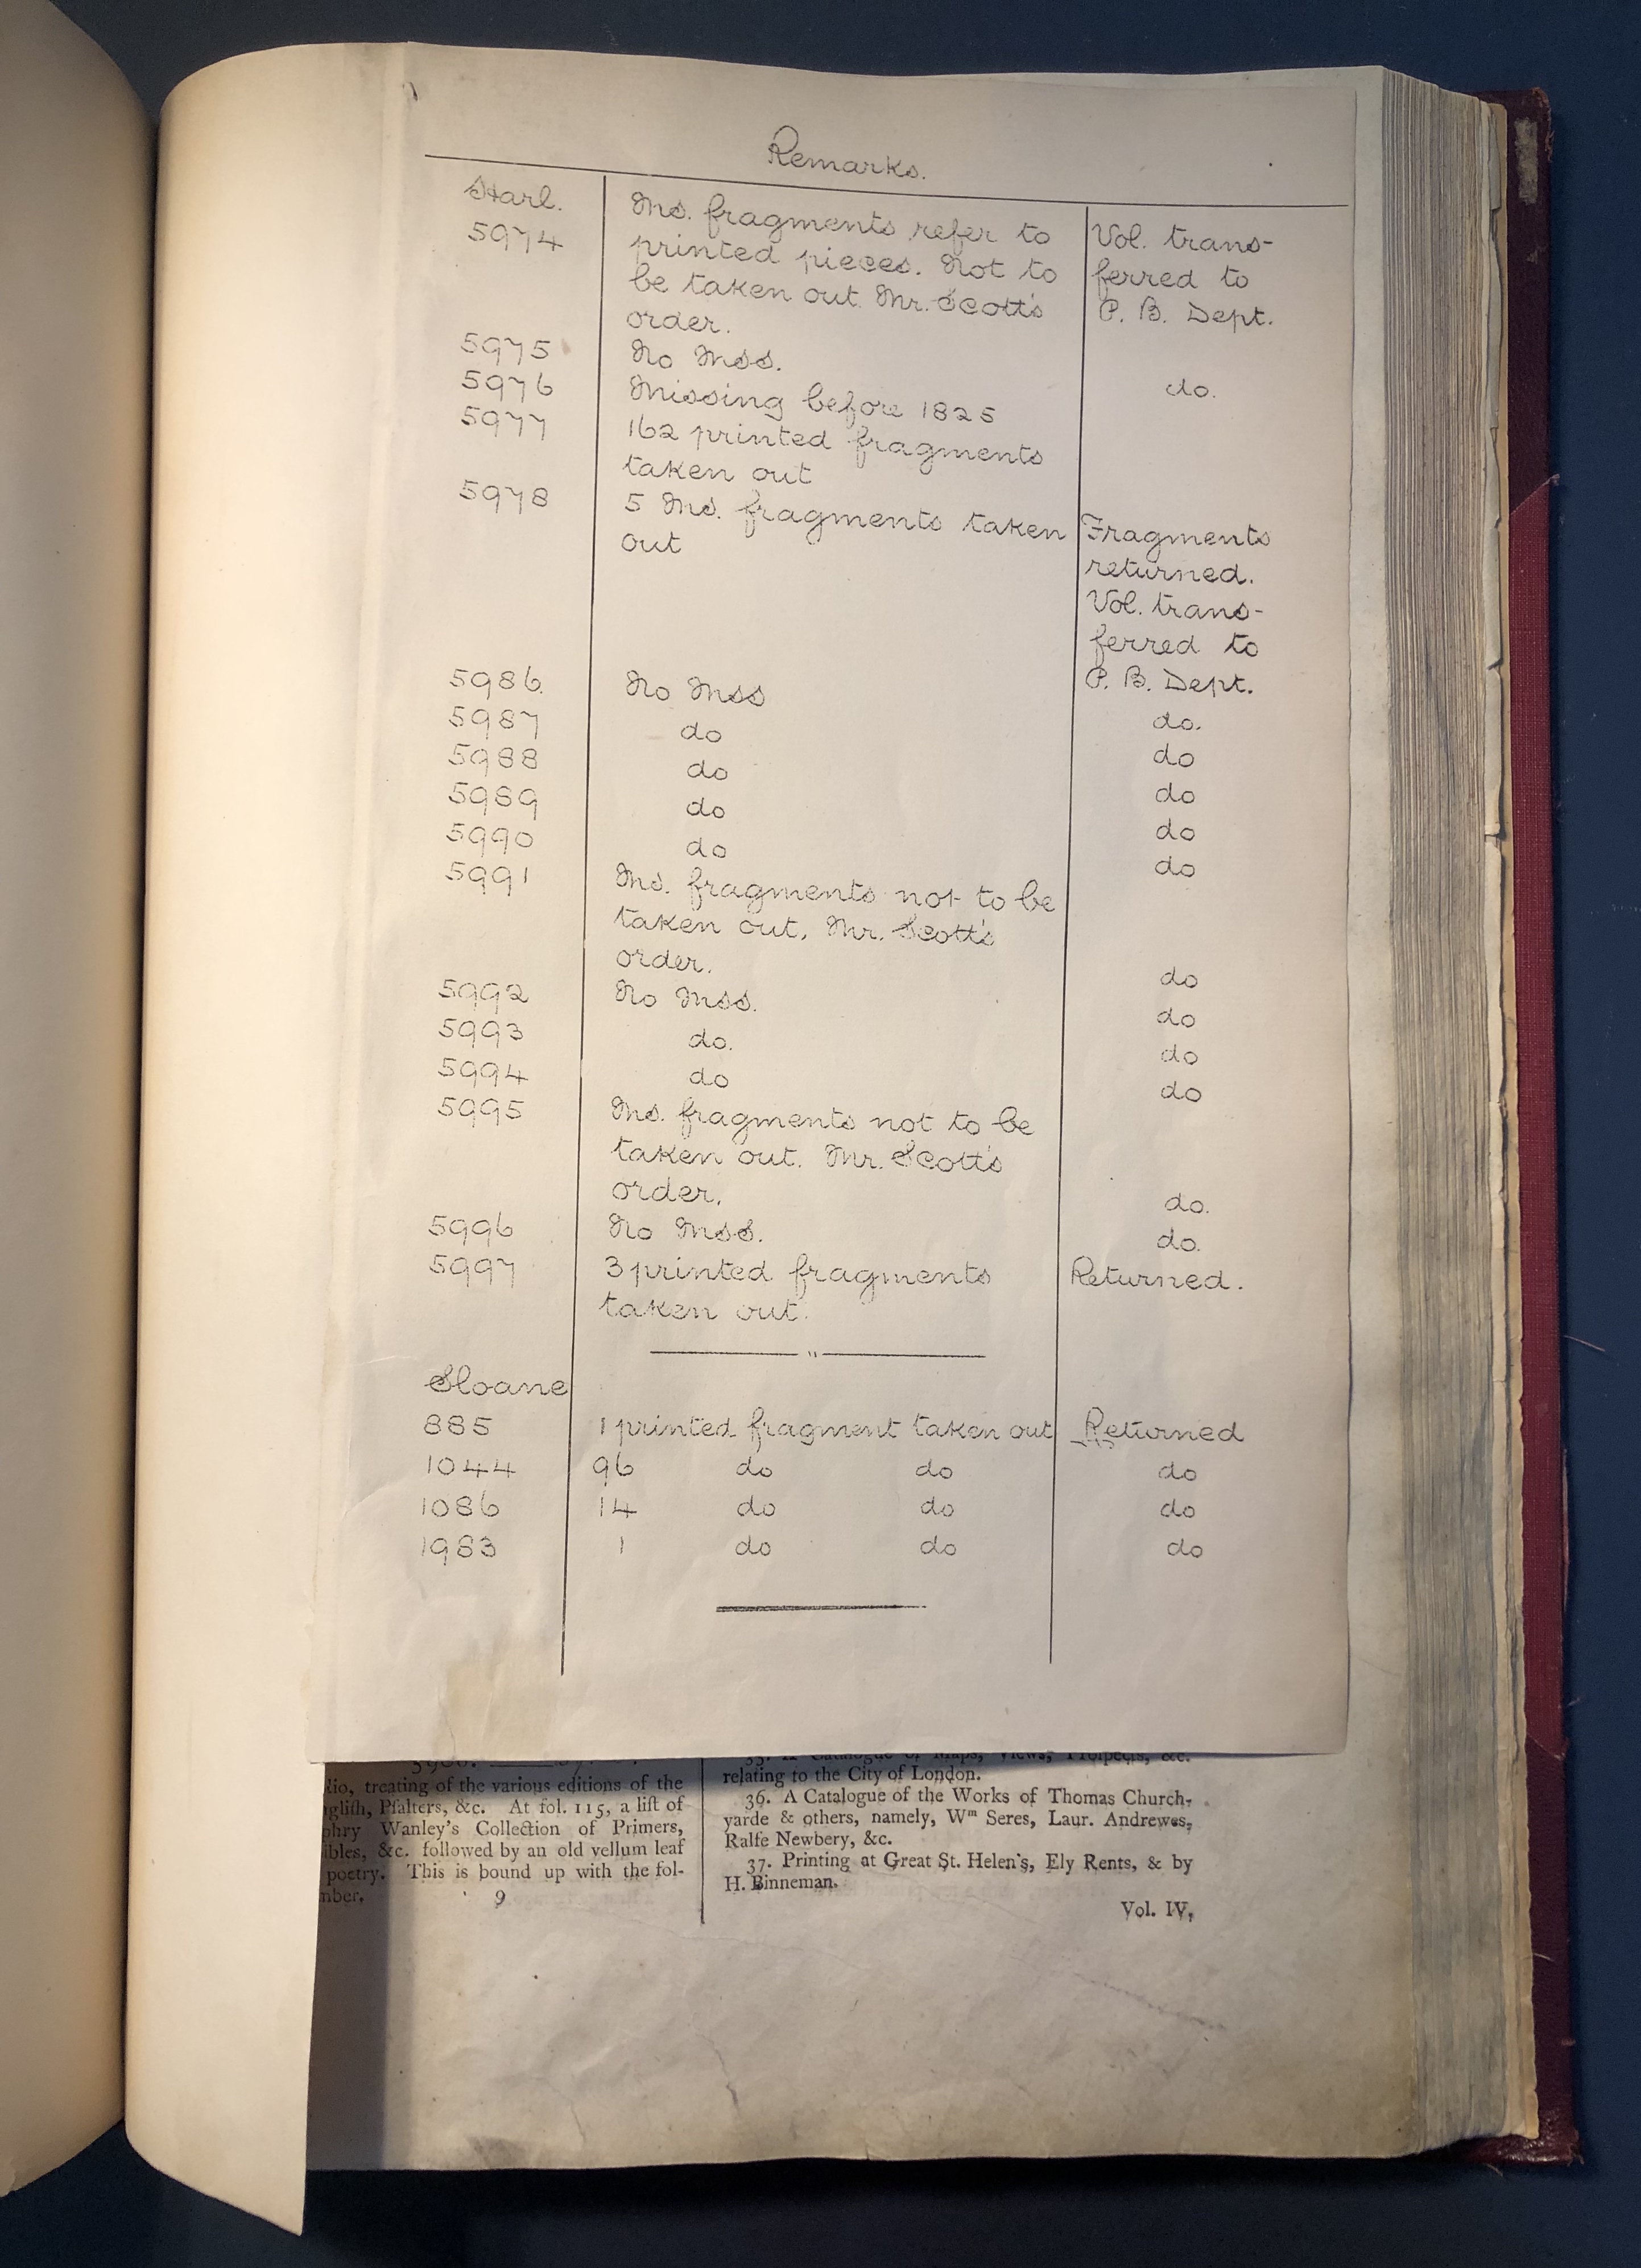 Remarks.
Harl.
5974 Ms. fragments refer to Vol. trans-
printed pieces. Not to ferred to
be taken out. Mr. Scott's P. B. Dept.
order.
5975 No Mss. do.
5976 Missing before 1825
5977 162 printed fragments
taken out
5978 5 Ms. fragments taken Fragments
out returned.
Vol. trans-
ferred to
P. B. Dept.
5986. No Mss do.
5987 do do
5988 do do
5989 do do
5990 do do
5991 Ms. fragments not to be
taken out. Mr. Scott's
order. do
5992 No Mss. do
5993 do. do
5994 do do
5995 Ms. fragments not to be
taken out. Mr. Scott's
order. do.
5996 No Mss. do.
5997 3 printed fragments Returned.
taken out.
Sloane
885 1 printed fragment taken out Returned
1044 96 do do do
1086 14 do do do
1983 1 do do do
lio, treating of the various editions of the
nglish, Psalters, &c. At fol. 115, a list of
phry Wanley's Collection of Primers,
ibles, &c. followed by an old vellum leaf
poetry. This is bound up with the fol-
mber.
9
35. A Catalogue of Maps, Views, Prospects, &c.
relating to the City of London.
36. A Catalogue of the Works of Thomas Church-
yarde & others, namely, Wm Seres, Laur. Andrewes,
Ralfe Newbery, &c.
37. Printing at Great St. Helen's, Ely Rents, & by
H. Binneman.
Vol. IV,